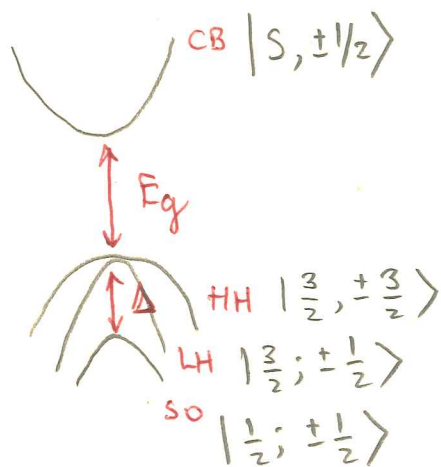 CB |S, ±1/2⟩
Eg
Δ
HH |3/2, ±3/2⟩
LH |3/2; ±1/2⟩
SO |1/2; ±1/2⟩